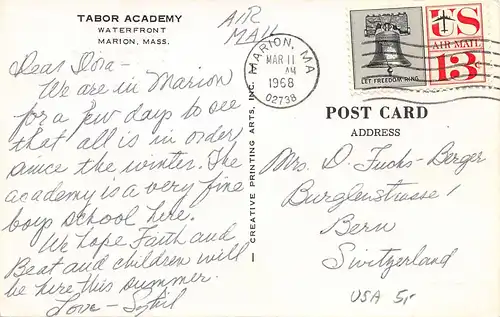 TABOR ACADEMY
WATERFRONT
MARION, MASS.
AIR
MAIL
Dear Dora—
We are in Marion
for a few days to see
that all is in order
since the winter. The
academy is a very fine
boys school here.
We hope Faith and
Beat and children will
be here this summer.
Love— Sybil
CREATIVE PRINTING ARTS, INC.
MARION, MA
MAR 11
AM
1968
02738
LET FREEDOM RING
US
AIR MAIL
13¢
POST CARD
ADDRESS
Mrs. D. Fuchs-Berger
Burglenstrasse 1
Bern
Switzerland
USA 5,-